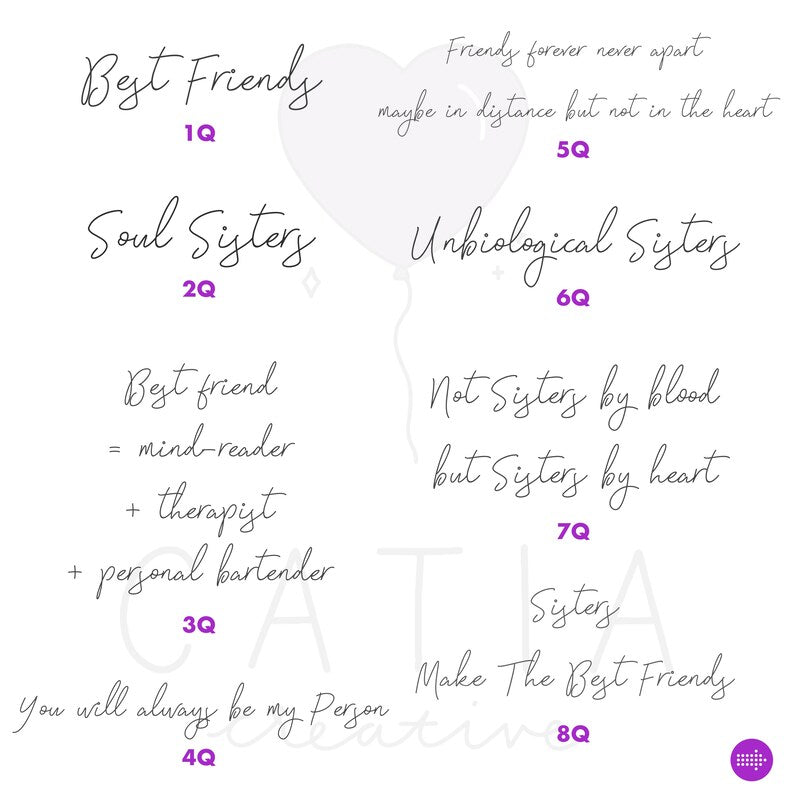 Best Friends
1Q
Soul Sisters
2Q
Best friend
= mind-reader
+ therapist
+ personal bartender
3Q
You will always be my Person
4Q
Friends forever never apart
maybe in distance but not in the heart
5Q
Unbiological Sisters
6Q
Not Sisters by blood
but Sisters by heart
7Q
Sisters
Make The Best Friends
8Q
CATIA
creative